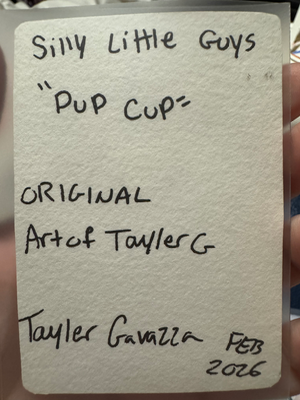 Silly Little Guys
"Pup Cup"
ORIGINAL
Art of Tayler G
Tayler Gavazza
FEB
2026